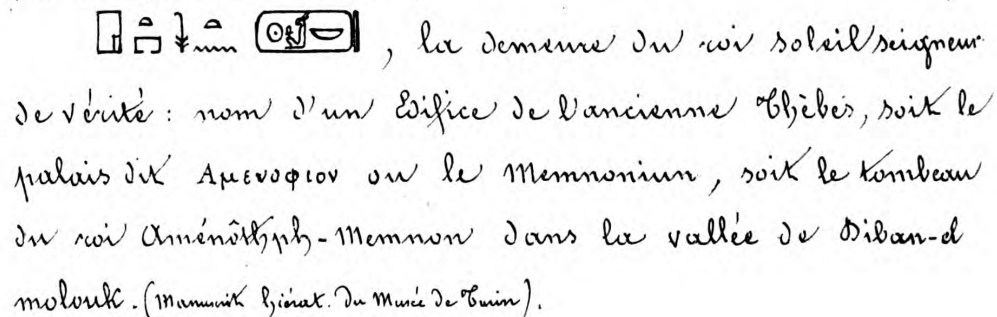 𓉗𓏏𓉐𓇓𓏏𓈖𓍹𓇳𓁦𓎟𓍺, la demeure du roi soleil seigneur
de vérité : nom d'un Edifice de l'ancienne Thèbes, soit le
palais dit Αμενοφιον ou le Memnoniun, soit le tombeau
du roi Aménôthph-Memnon dans la vallée de Biban-el
molouk. (Manuscrit hiérat. du Musée de Turin).